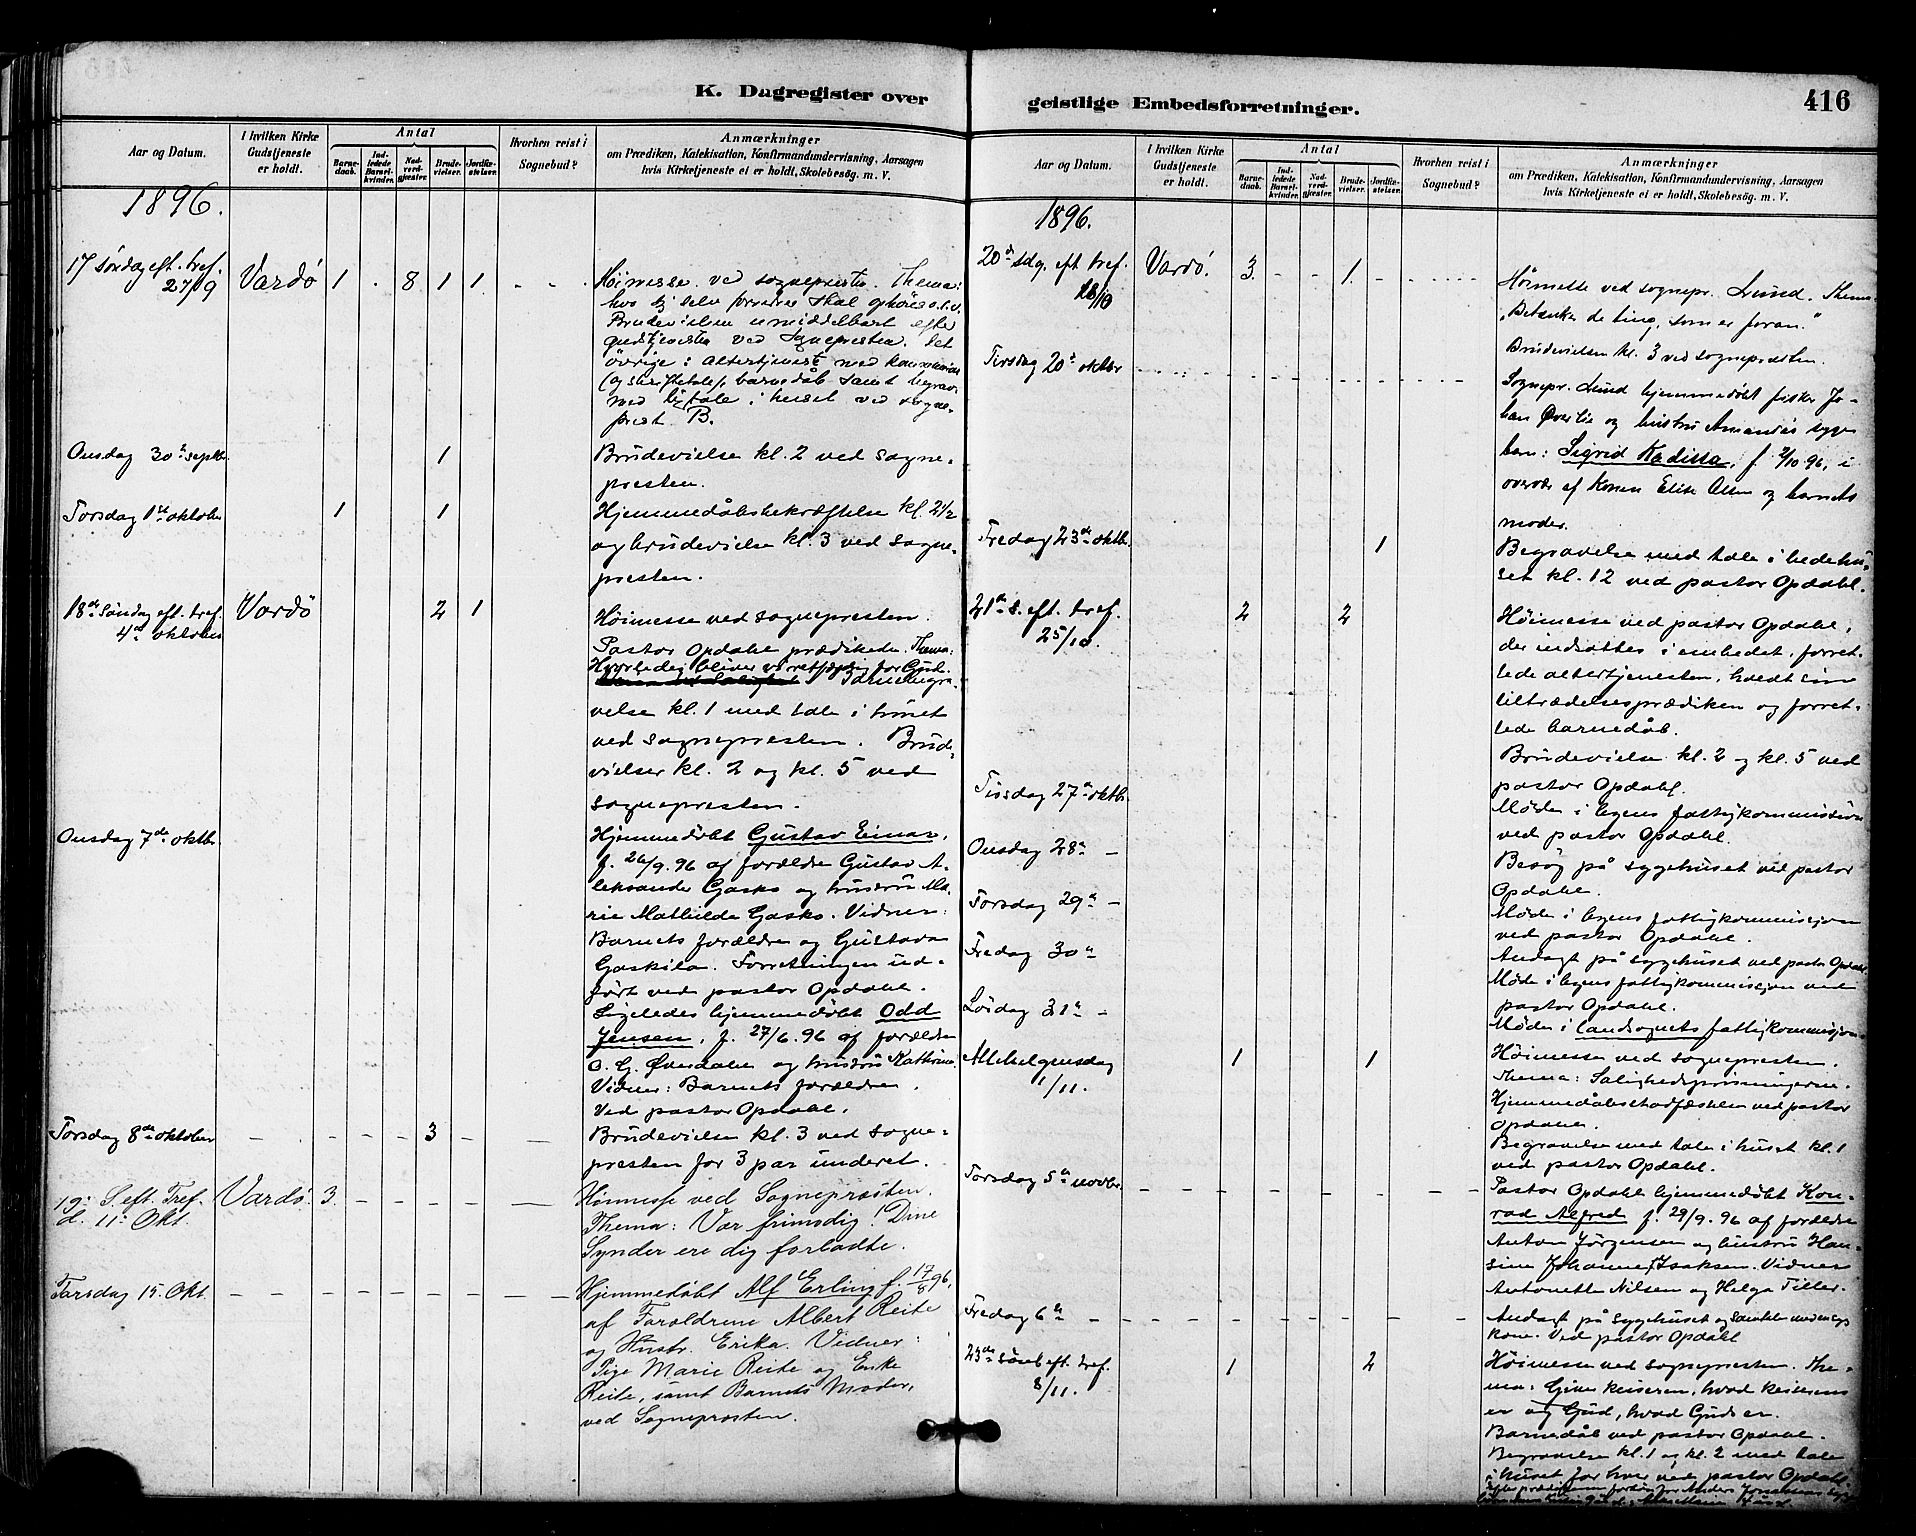 K. Dagregister over
Aar og Datum.
I hvilken Kirke Gudstjeneste er holdt.
Antal
Barnedaab.
Indledede Barselkvinder.
Nadverdgjester.
Brudevielser.
Jordfæstelser.
Hvorhen reist i Sognebud?
Anmærkninger
om Prædiken, Katekisation, Konfirmandundervisning, Aarsagen
hvis Kirketjeneste ei er holdt, Skolebesøg. m. V.
1896.
17 søndag eft. tref. 27/9 Vardø 1 . 8 1 1 - -
Høimesse ved sognepresten. Thema:
hos sig selv skal
Brudevielsen umiddelbart efter
gudstjenesten ved Sognepresten. Det
øvrige: altertjeneste med
barnedåb samt
med tale i huset ved sogne-
prest B.
Onsdag 30te septbr. 1
Brudevielse kl. 2 ved sogne-
presten.
Torsdag 1ste oktober 1 1
Hjemmedåbsbekræftelse kl. 2 1/2
og brudevielse kl. 3 ved sogne-
presten.
18de søndag eft. tref. 4de oktober Vardö 2 1
Høimesse ved sognepresten.
Pastor Opdahl prædikede. Thema:
Hvorledes bliver vi retfærdig for Gud.
velse kl. 1 med tale i huset
ved sognepresten. Brude-
vielser kl. 2 og kl. 5 ved
sognepresten.
Onsdag 7de oktbr.
Hjemmedøbt Gustav Einar,
f. 26/9. 96 af forældre Gustav A-
leksander Gasko og hustru Ma-
rie Mathilda Gasko. Vidner:
Barnets forældre og Gustava
Gaskila. Forretningen ud-
ført ved pastor Opdahl.
Ligeledes hjemmedøbt Odd
Jensen, f. 27/6. 96 af forældre
O. G. og hustru Kathrine.
Vidner: Barnets forældre.
Ved pastor Opdahl.
Torsdag 8de oktober - - - - 3 - -
Brudevielse kl. 3 ved sogne-
presten for 3 par underet.
19: S. eft. Tref. d. 11: Okt. Vardö. 3 - - - - -
Höimesse ved Sognepræsten.
Thema: Vær frimodig! Dine
Synder ere dig forladte.
Torsdag 15. Okt. - - - - - - -
Hjemmedøbt Alf Erling f. 17/8 96,
af Forældrene Albert Reite
og Hustr. Erika. Vidner:
Pige Marie Reite og Enke
Reite, samt Barnets Moder,
ved Sognepræsten.
geistlige Embedsforretninger.
416
Aar og Datum.
I hvilken Kirke Gudstjeneste er holdt.
Antal
Barnedaab.
Indledede Barselkvinder.
Nadverdgjester.
Brudevielser.
Jordfæstelser.
Hvorhen reist i Sognebud?
Anmærkninger
om Prædiken, Katekisation, Konfirmandundervisning, Aarsagen
hvis Kirketjeneste ei er holdt, Skolebesøg. m. V.
1896.
20de sdg. eft. tref. 18/10 Vardö. 3. - - 1. -
Høimesse ved sognepr. Lund. Thema:
"Betænke de ting, som er foran."
Brudevielsen kl. 3 ved sognepresten.
Tirsdag 20de oktbr
Sognepr. Lund hjemmedøbt fisker Jo-
han og hustru Amandas syge
barn: Sigrid, f. 2/10 96, i
overvær af Konen Elise Olsen og barnets
moder.
Fredag 23de oktbr. 1
Begravelse med tale i bedehu-
set kl. 12 ved pastor Opdahl.
21de s. eft. tref. 25/10. 2 2
Høimesse ved pastor Opdahl,
der indsattes i embedet, forret-
tede altertjenesten, holdt sin
tiltrædelsesprædiken og forret-
tede barnedåb.
Brudevielse kl. 2 og kl. 5 ved
pastor Opdahl.
Tirsdag 27de oktbr.
Møde i byens fattigkommission
ved pastor Opdahl.
Onsdag 28de -
Besøg på sygehuset ved pastor
Opdahl.
Torsdag 29de -
Møde i byens fattigkommission
ved pastor Opdahl.
Fredag 30te
Andagt på sygehuset ved pastor Opdahl
Møde i byens fattigkommission ved
pastor Opdahl.
Lørdag 31te -
Møde i landsognets fattigkommission
Allehelgensdag 1/11. 1 1
Høimesse ved sognepresten.
Thema: Salighedsprisningerne.
Hjemmedåbsstadfæstelse ved pastor
Opdahl.
Begravelse med tale i huset kl. 1
ved pastor Opdahl.
Torsdag 5te novbr. - - - - - - -
Pastor Opdahl hjemmedøbt Kon-
rad Alfred f. 29/9. 96 af forældre
Anton Jörgensen og hustru Han-
sine Johanne Isaksen. Vidner
Antonette Nilsen og Helga Tiller.
Fredag 6te - - - - - - -
Andagt på sygehuset og samtale med en syg
kone. Ved pastor Opdahl
23de sönd. eft. tref. 8/11. 1 2
Høimesse ved sognepresten. The-
ma: Giver keiseren, hvad keiserens
er og Gud, hvad Guds er.
Barnedåb ved pastor Opdahl.
Begravelse kl. 1 og kl. 2 med tale
i huset for hver ved pastor Opdahl